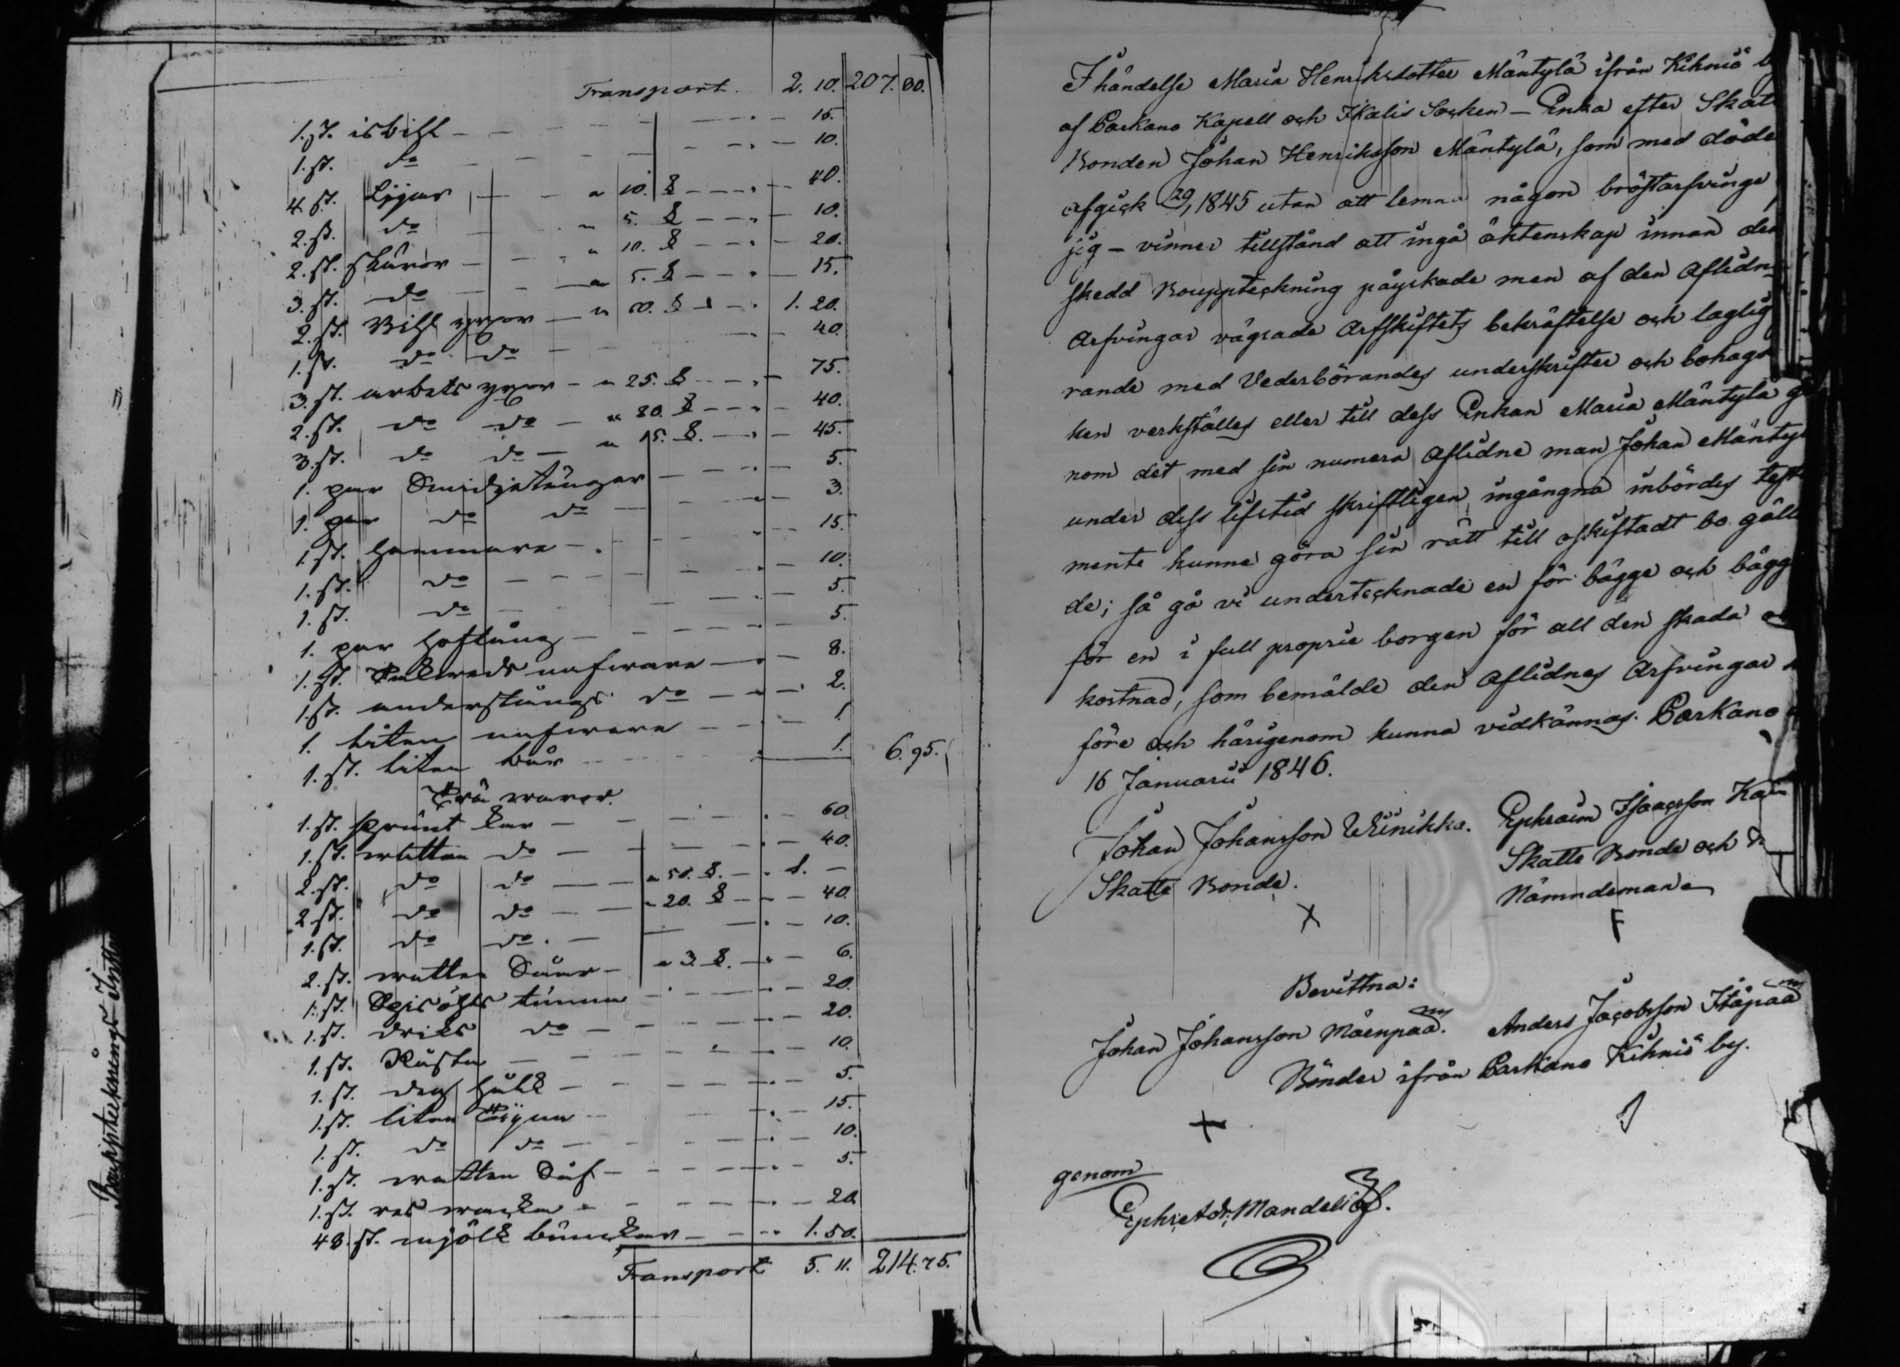 Transport. 2. 10. 207. 80.
1. st. isbihl — 15.
1. st. do — 10.
4. st. Lijar — a 10. — 40.
2. st. do a 5. — 10.
2. st. skäror — a 10. — 20.
3. st. do — a 5. — 15.
2. st. Bihl yxor — a 60. — 1. 20.
1. st. do do — 40.
3. st. arbets yxor — a 25. — 75.
2. st. do do — a 20. — 40.
3. st. do do — a 15. — 45.
1. par Smidjetånger — 5.
1. par do do — 3.
1. st. Hammare — 15.
1. st. do — 10.
1. st. do — 5.
1. par Hoftång — 5.
1. st. nafware — 8.
1. st. do — 2.
1. liten nafware — 1.
1. st. liten bår — 1. 6. 95.
Trä waror.
1. st. kar — 60.
1. st. watten do — 40.
2. st. do do — a 50. — 1. —
2. st. do do — a 20. — 40.
1. st. do do. — 10.
2. st. watten Såar — a 3. — 6.
1. st. tunna — 20.
1. st. dricks do — 20.
1. st. — 10.
1. st. deg — 5.
1. st. liten Tijna — 15.
1. st. do do — 10.
1. st. watten — 5.
1. st. — 20.
48. st. mjölk bunckar — 1. 50.
Transport 5. 11. 214. 75.
I händelse Maria Henriksdotter Mäntylä ifrån Kihniö
af Parkano Kapell och Ikalis Socken — Enka efter Skat
Bonden Johan Henriksson Mäntylä, som med döde
afgick 1845 utan att lemna någon bröstarfvinge
sig — vinner tillstånd att ingå äktenskap innan den
skedd Bouppteckning påyrkade men af den Aflidn
Arfvingar vägrade Arfskiftets bekräftelse och laglig
rande med Vederbörandes underskrifter och bohags
ken verkställes eller till dess Enkan Maria Mäntylä ge
nom det med sin numera Aflidne man Johan Mänty
under dess lifstid skriftligen ingångna inbördes test
mente kunna göra sin rätt till oskiftadt bo gäll
de; så gå vi undertecknade en för bägge och bägg
för en i full proprie borgen för all den skada
kostnad, som bemälde den Aflidnes Arfvingar
före och härigenom kunna vidkännas. Parkano
16 Januarii 1846.
Johan Johansson Wiinikka. Ephraim Isaacsson
Skatte Bonde. Skatte Bonde och
Nämndeman
X
Bevittna:
Johan Johansson Mäenpää. Anders Jacobsson Itäpää
Bönder ifrån Parkano Kihniö by.
genom
Mandelöf.
Bouppteknings